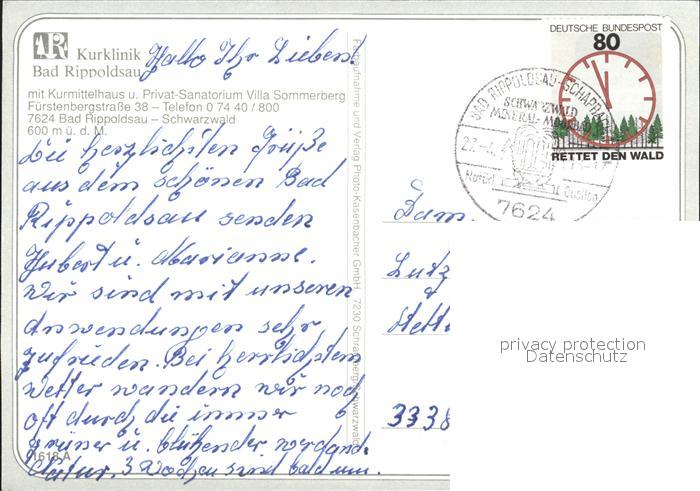 AR Kurklinik
Bad Rippoldsau
mit Kurmittelhaus u. Privat-Sanatorium Villa Sommerberg
Fürstenbergstraße 38 – Telefon 0 74 40 / 800
7624 Bad Rippoldsau – Schwarzwald
600 m ü. d. M.
Hallo Ihr Lieben.
Die herzlichsten Grüße
aus dem schönen Bad
Rippoldsau senden
Hubert u. Marianne.
Wir sind mit unseren
Anwendungen sehr
zufrieden. Bei herrlichstem
Wetter wandern wir noch
oft durch die immer
grüner u. blühender werdende
Natur. 3 Wochen sind bald um.
1618 A
Farbaufnahme und Verlag Photo-Kasenbacher GmbH · 7230 Schramberg/Schwarzwald
DEUTSCHE BUNDESPOST
80
RETTET DEN WALD
BAD RIPPOLDSAU-SCHAPBACH
SCHWARZWALD
MINERAL-MOORBAD
7624
Fam.
Lutz
Stett
3338
privacy protection
Datenschutz